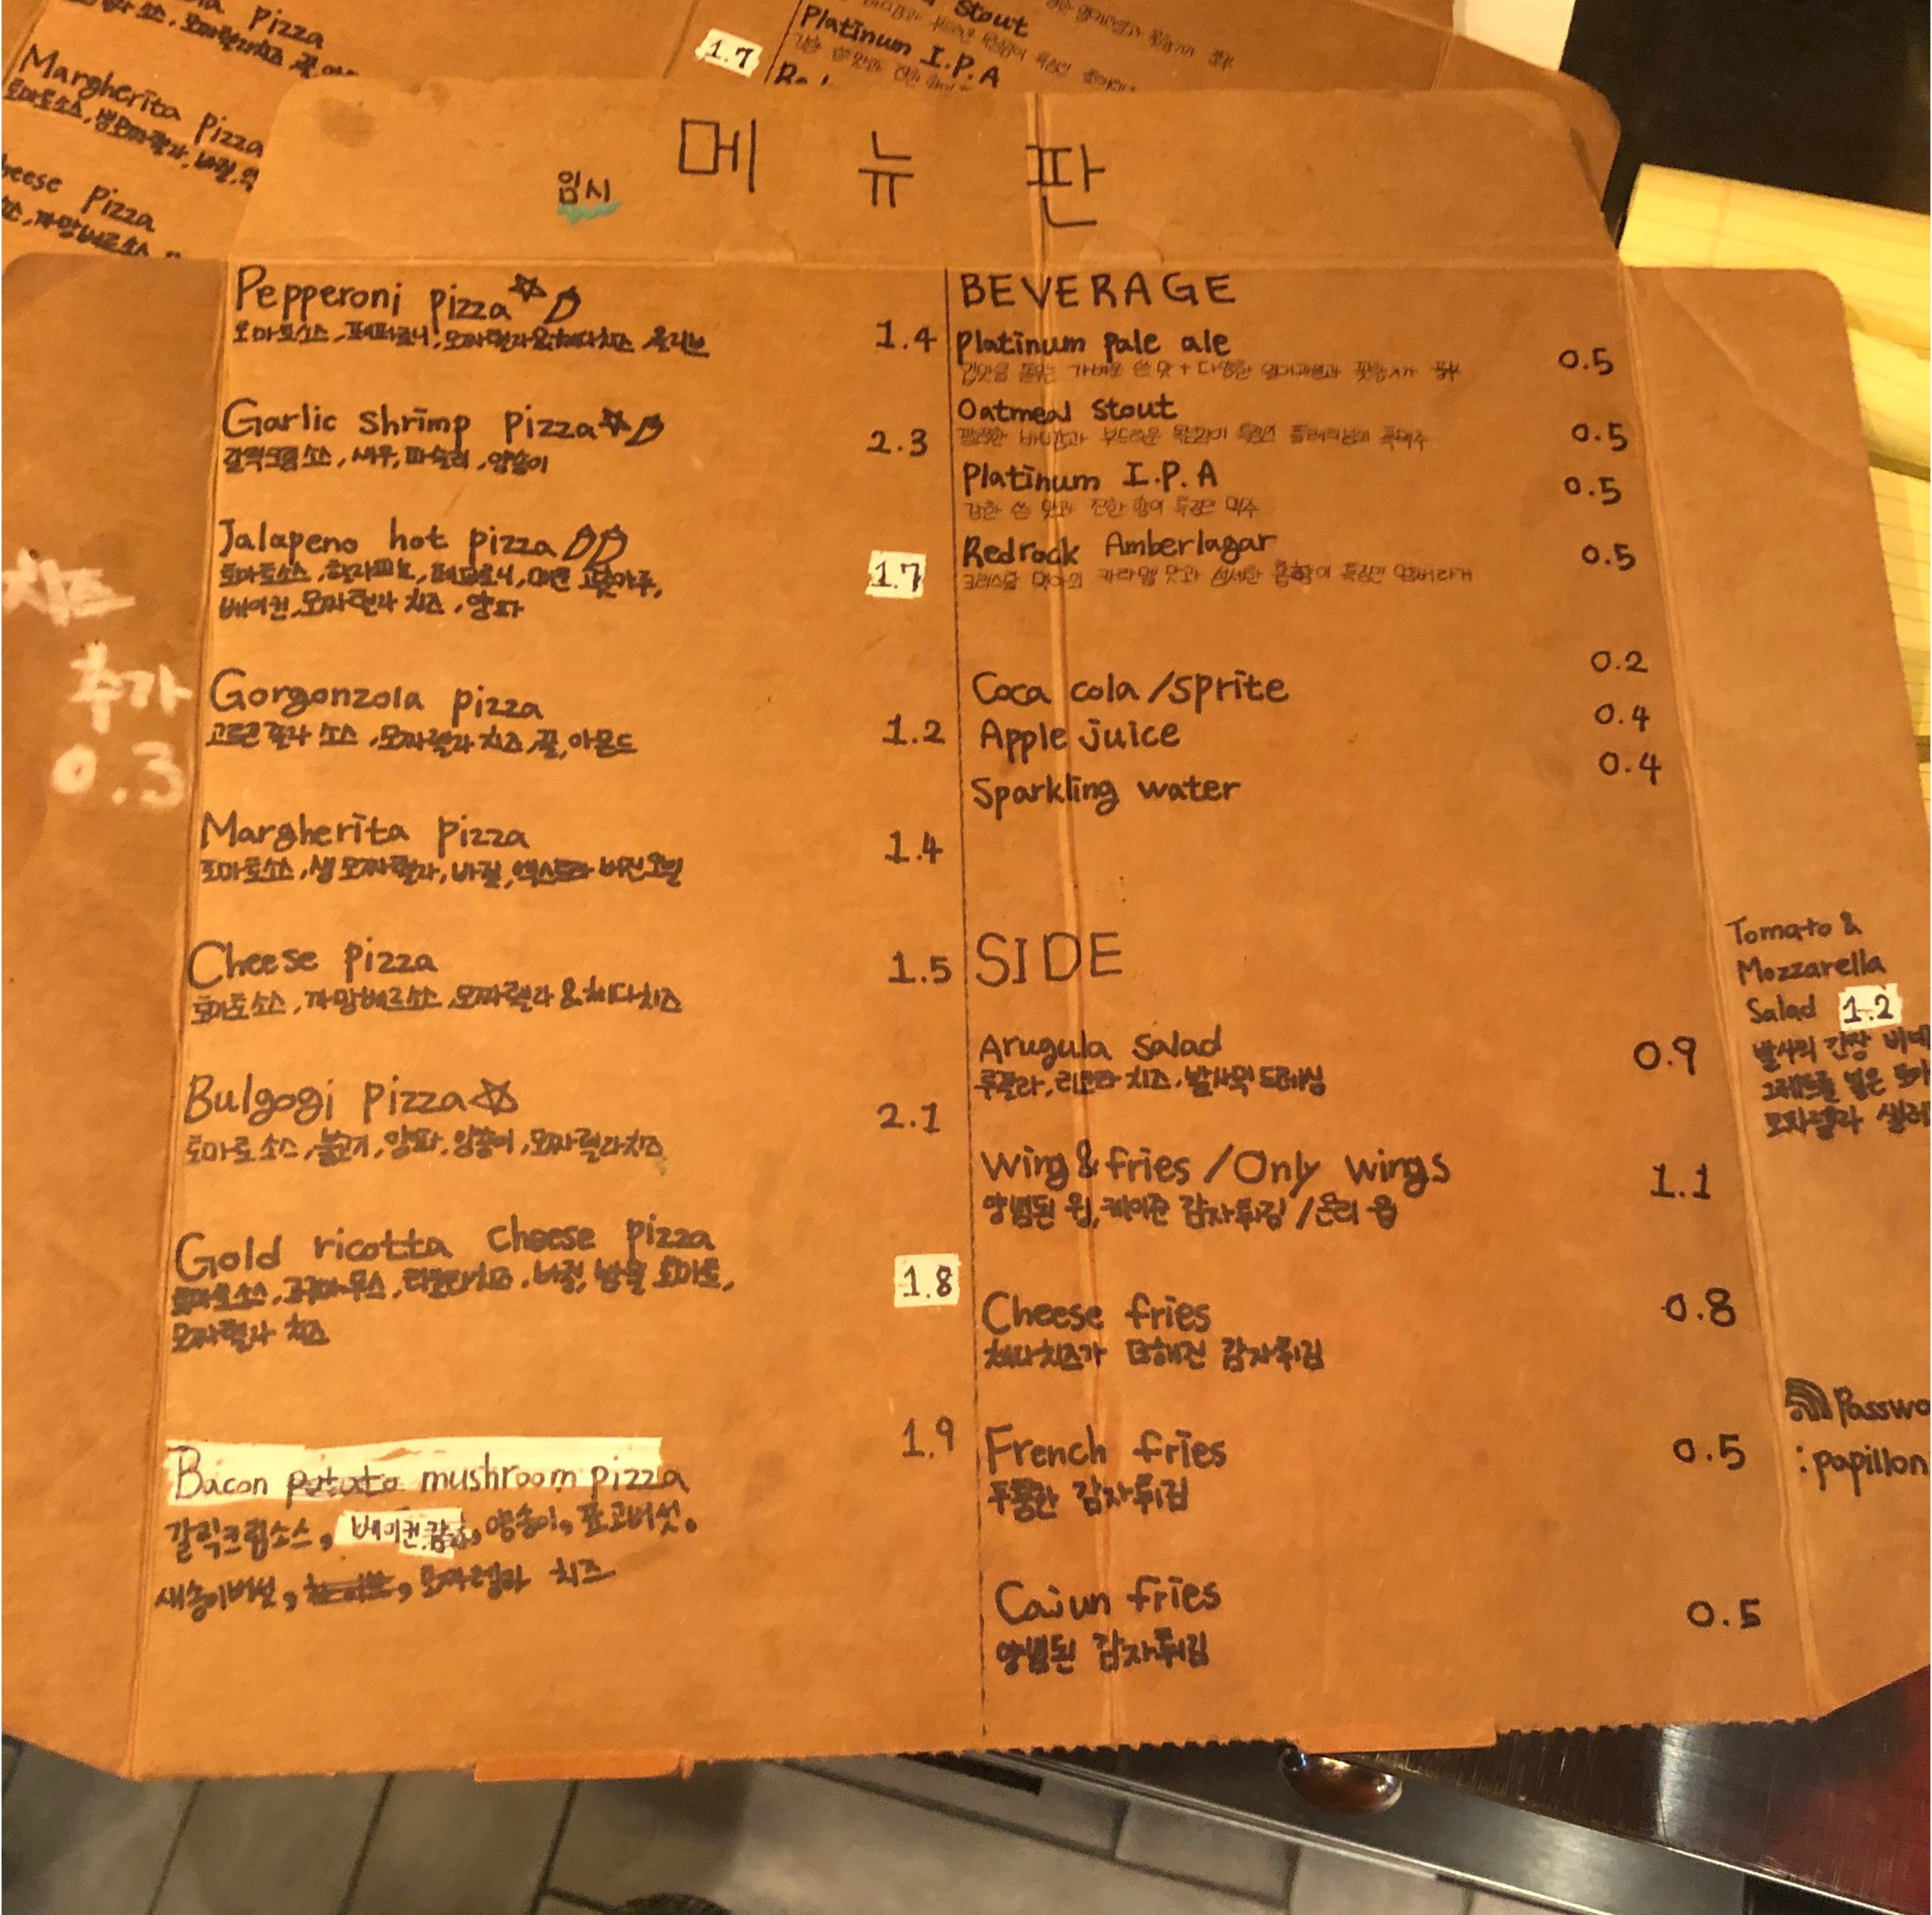 pizza
Margherita pizza
cheese pizza
stout
Platinum I.P.A
1.7
임시 메뉴판
Pepperoni pizza 1.4
토마토소스, 페퍼로니, 모짜렐라&체다치즈, 올리브
Garlic shrimp pizza 2.3
갈릭크림소스, 새우, 파슬리, 양송이
Jalapeno hot pizza 1.7
토마토소스, 할라피뇨, 페퍼로니, 매운 고춧가루,
베이컨, 모짜렐라 치즈, 양파
Gorgonzola pizza 1.2
고르곤졸라 소스, 모짜렐라 치즈, 꿀, 아몬드
Margherita pizza 1.4
토마토소스, 생모짜렐라, 바질, 엑스트라 버진오일
Cheese pizza 1.5
토마토소스, 까망베르소스, 모짜렐라 & 체다치즈
Bulgogi pizza 2.1
토마토소스, 불고기, 양파, 양송이, 모짜렐라치즈
Gold ricotta cheese pizza 1.8
토마토소스, 고구마무스, 리코타치즈, 바질, 방울 토마토,
모짜렐라 치즈
Bacon potato mushroom pizza 1.9
갈릭크림소스, 베이컨, 양송이, 표고버섯,
새송이버섯, 모짜렐라 치즈
치즈
추가
0.3
BEVERAGE
Platinum pale ale 0.5
가벼운 쓴 맛 + 다양한 열대과일과 꽃향기가 풍부
Oatmeal stout 0.5
부드러운 목넘김이 특징인 흑맥주
Platinum I.P.A 0.5
강한 쓴 맛과 진한 향이 특징인 맥주
Redrock Amberlagar 0.5
크리스탈 맥아의 카라멜 맛과 섬세한 홉향이 특징인 엠버라거
Coca cola/sprite 0.2
Apple juice 0.4
Sparkling water 0.4
SIDE
Arugula salad 0.9
루꼴라, 리코타 치즈, 발사믹 드레싱
Wing & fries / Only wings 1.1
양념된 윙, 케이준 감자튀김 / 온리 윙
Cheese fries 0.8
체다치즈가 더해진 감자튀김
French fries 0.5
두툼한 감자튀김
Cajun fries 0.5
양념된 감자튀김
Tomato &
Mozzarella
Salad 1.2
모짜렐라 샐러
Passwo
: papillon